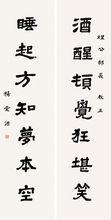 煜公部長教正
酒醒頓覺狂堪笑
睡起方知夢本空
楊愛源